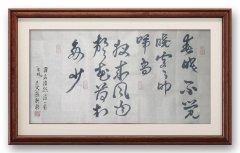 春眠不觉
晓处处闻
啼鸟
夜来风雨
声花落知
多少